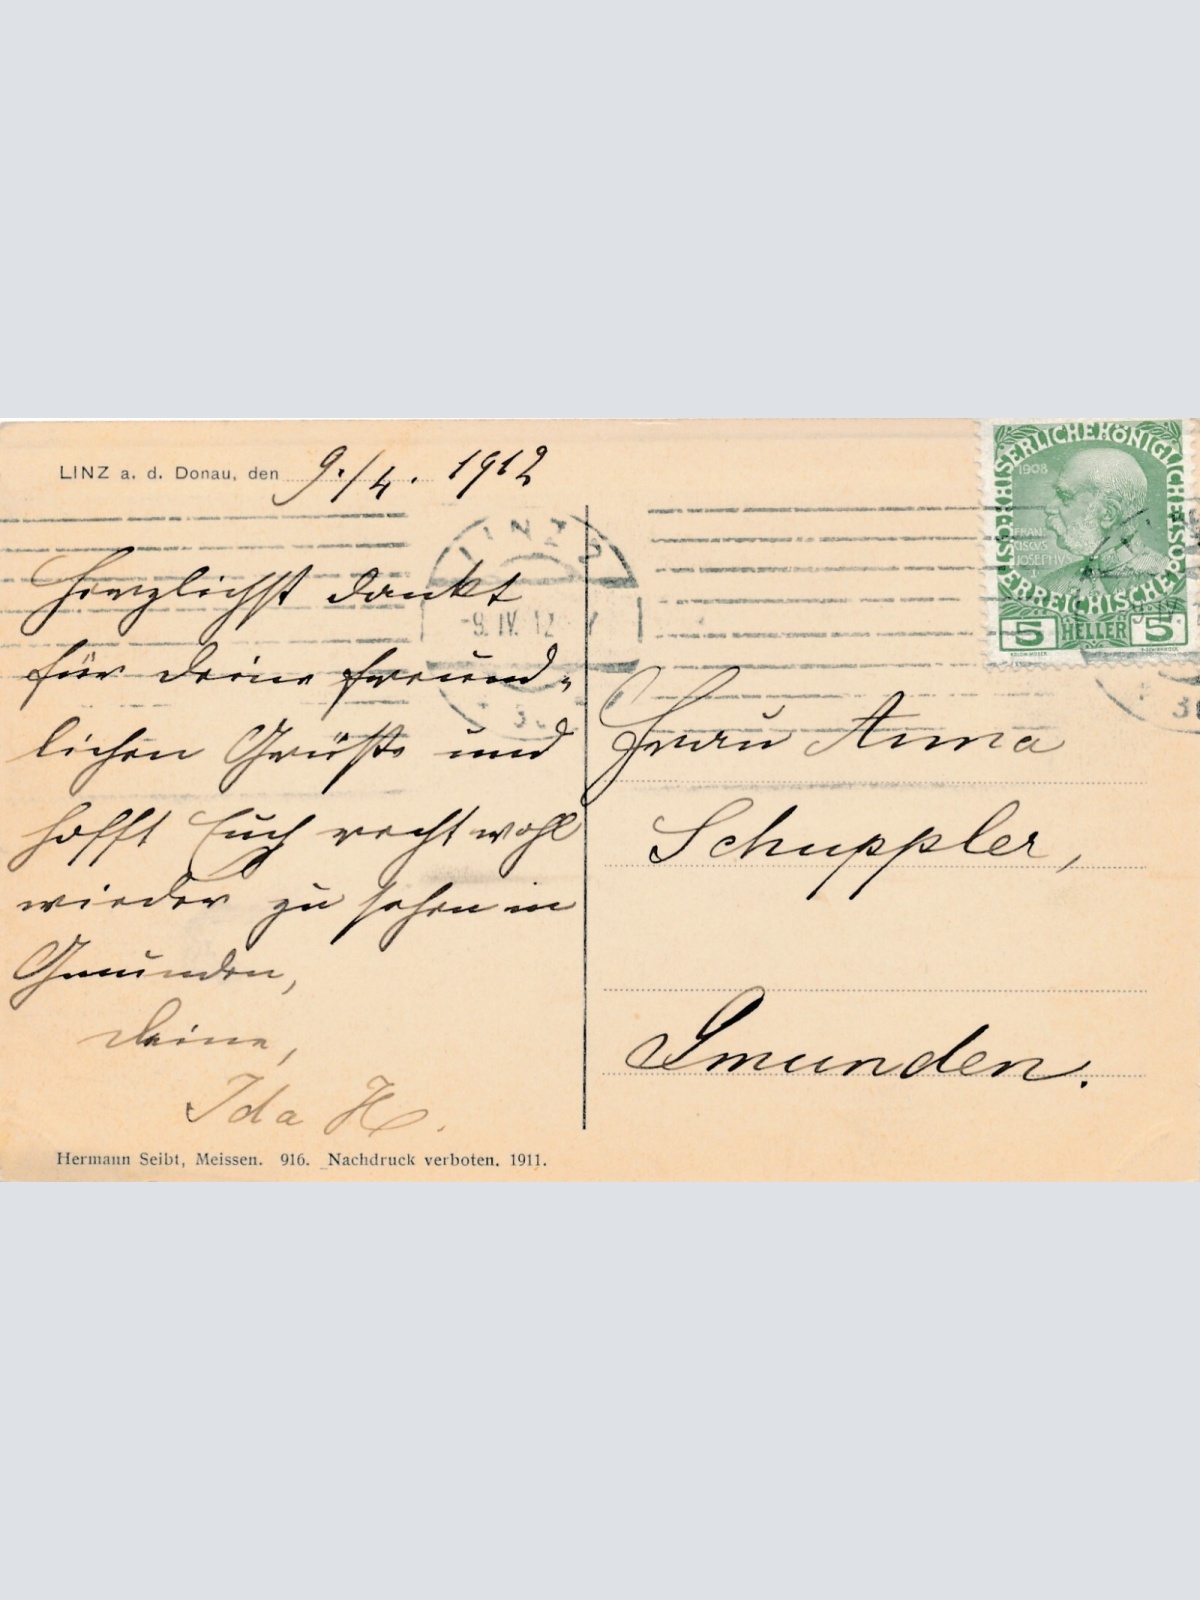 LINZ a. d. Donau, den 9./4. 1912
Herzlichst dankt
für deine freund-
lichen Grüße und
hofft Euch recht wohl
wieder zu sehen in
Gmunden,
Deine,
Ida H.
Hermann Seibt, Meissen. 916. Nachdruck verboten. 1911.
LINZ
-9. IV. 12
KAISERLICHE KÖNIGLICHE ÖSTERREICHISCHE
1908
FRAN
CISCVS
JOSEPHVS
I
5 HELLER 5
Frau Anna
Schuppler,
Gmunden.